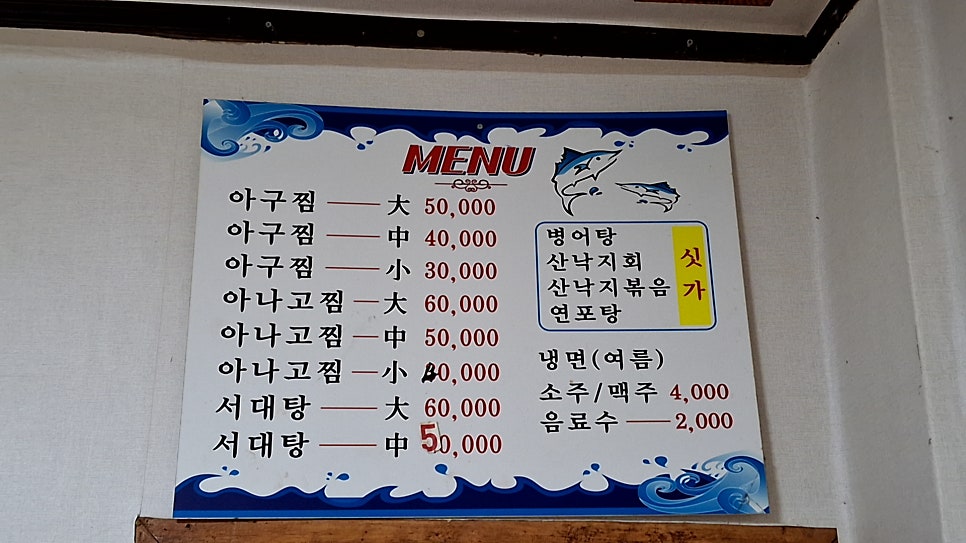 MENU
아구찜 大 50,000
아구찜 中 40,000
아구찜 小 30,000
아나고찜 大 60,000
아나고찜 中 50,000
아나고찜 小
서대탕 大 60,000
서대탕 中 50,000
병어탕
산낙지회
산낙지볶음
연포탕
싯가
냉면(여름)
소주/맥주 4,000
음료수 2,000